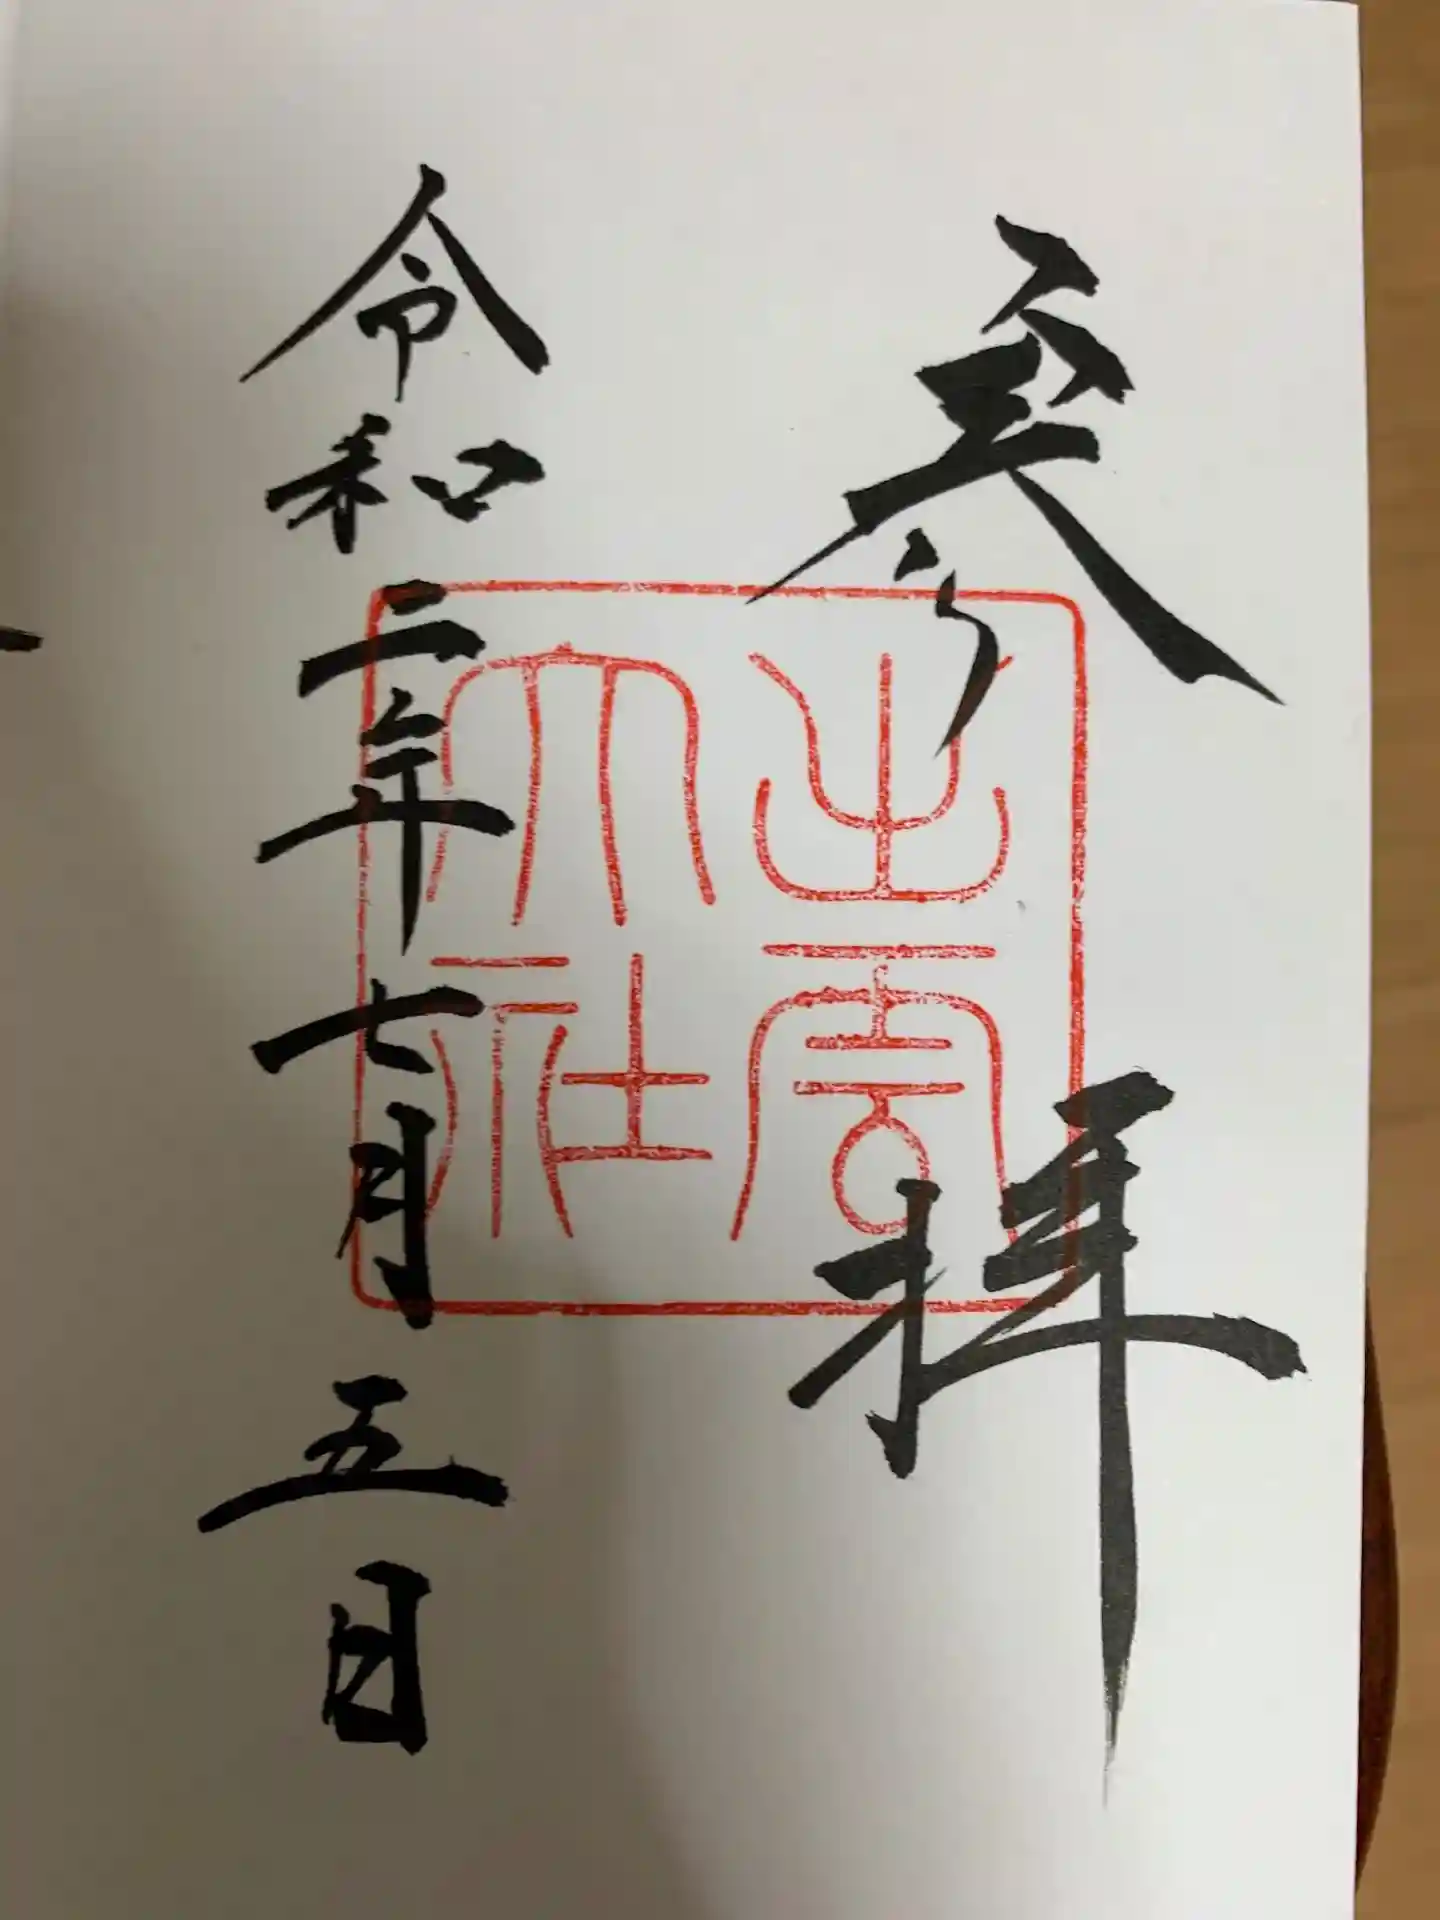 參拝
出雲
大社
令和二年七月五日